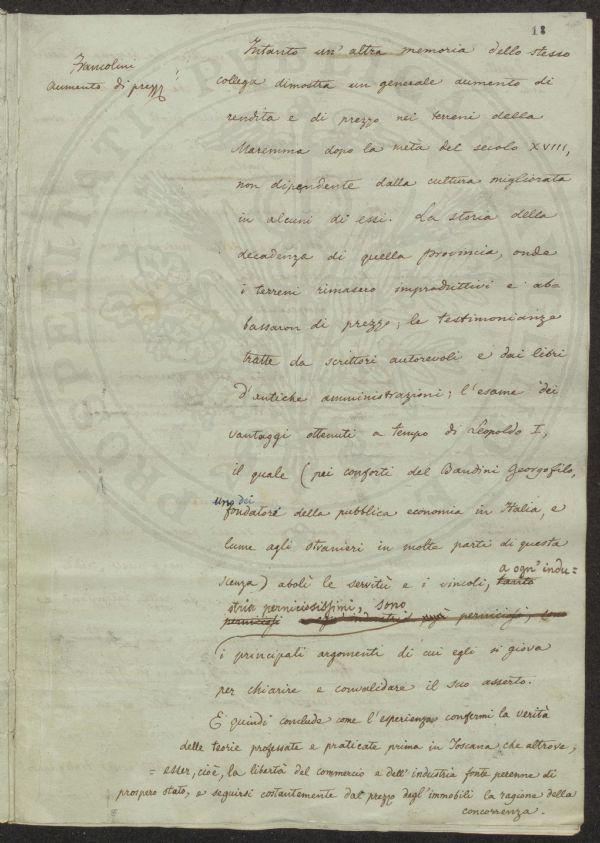 18
Francolini
Aumento di prezzi
Intanto un' altra memoria dello stesso
collega dimostra un generale aumento di
rendita e di prezzo nei terreni della
Maremma dopo la metà del secolo XVIII,
non dipendente dalla cultura migliorata
in alcuni di essi. La storia della
decadenza di quella provincia, onde
i terreni rimasero improduttivi e ab=
bassaron di prezzo; le testimonianze
tratte da scrittori autorevoli e dai libri
d'antiche amministrazioni; l'esame dei
vantaggi ottenuti a tempo di Leopoldo I,
il quale (pei conforti del Bandini Georgofilo,
uno dei
fondatore della pubblica economia in Italia, e
lume agli stranieri in molte parti di questa
scienza) abolì le servitù e i vincoli, tanto
a ogn' indu=
stria perniciosissimi, sono
perniciosi perniciosi, son
i principali argomenti di cui egli si giova
per chiarire e convalidare il suo asserto.
E quindi conclude come l'esperienza confermi la verità
delle teorie professate e praticate prima in Toscana che altrove;
= esser, cioè, la libertà del commercio e dell' industria fonte perenne di
prospero stato, e seguirsi costantemente dal prezzo degl'immobili la ragione della
concorrenza.